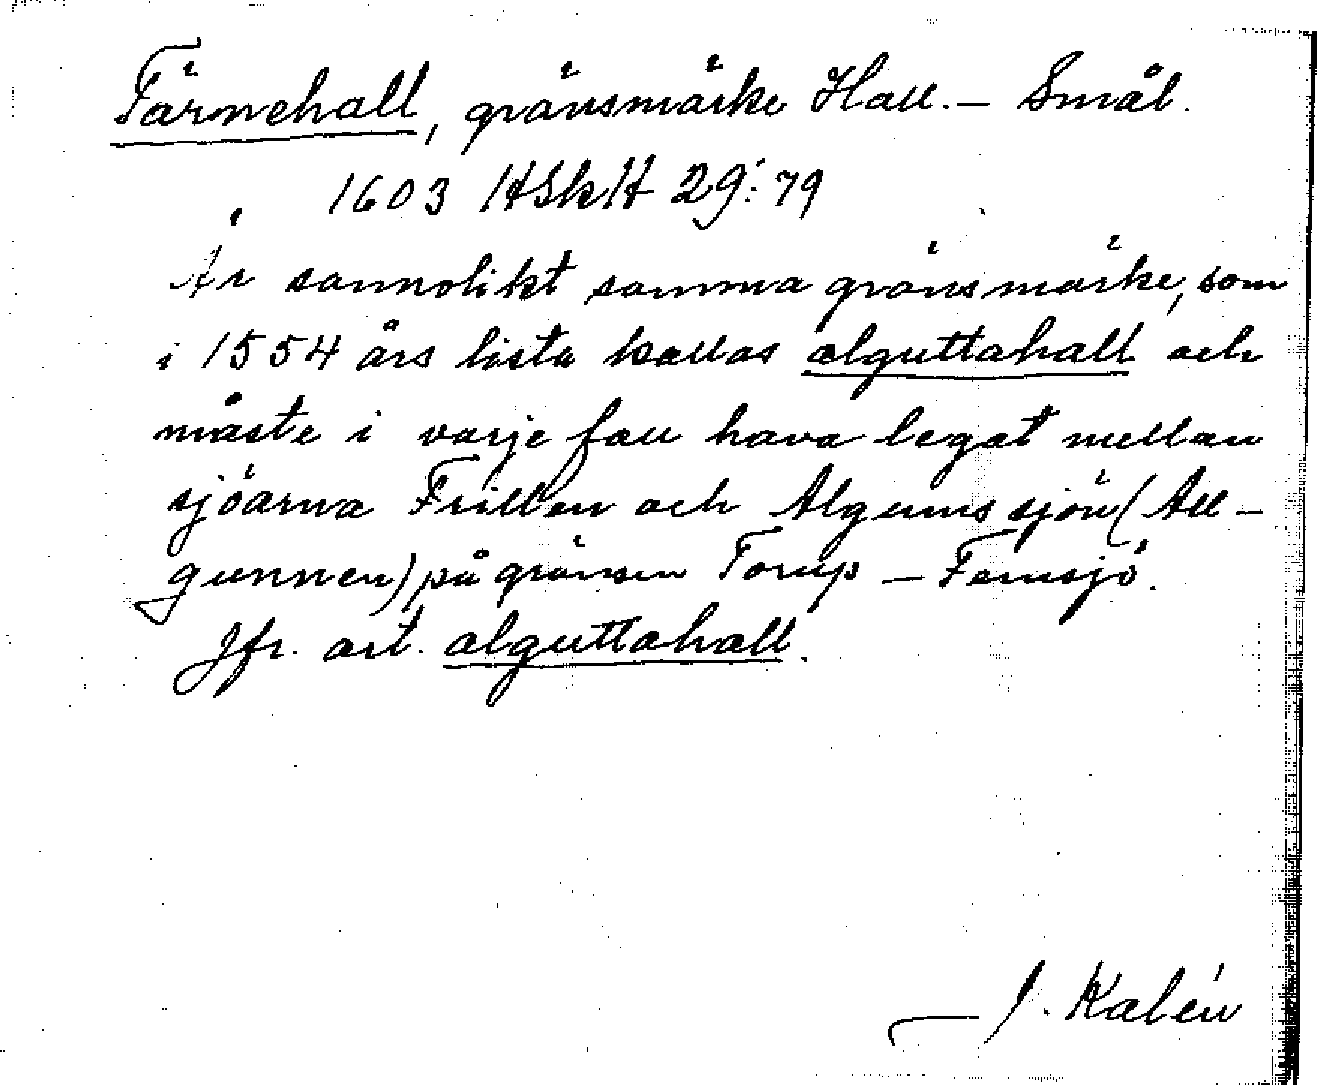 Tärnehall, gränsmärke Hall. – Smål.
1603 HSkH 29:79
Är sannolikt samma gränsmärke, som
i 1554 års lista kallas alguttahall och
måste i varje fall hava legat mellan
sjöarna Frillen och Algunns sjön (All-
gunnen) på gränsen Torup – Femsjö.
Jfr. art. alguttahall.
J. Kalén